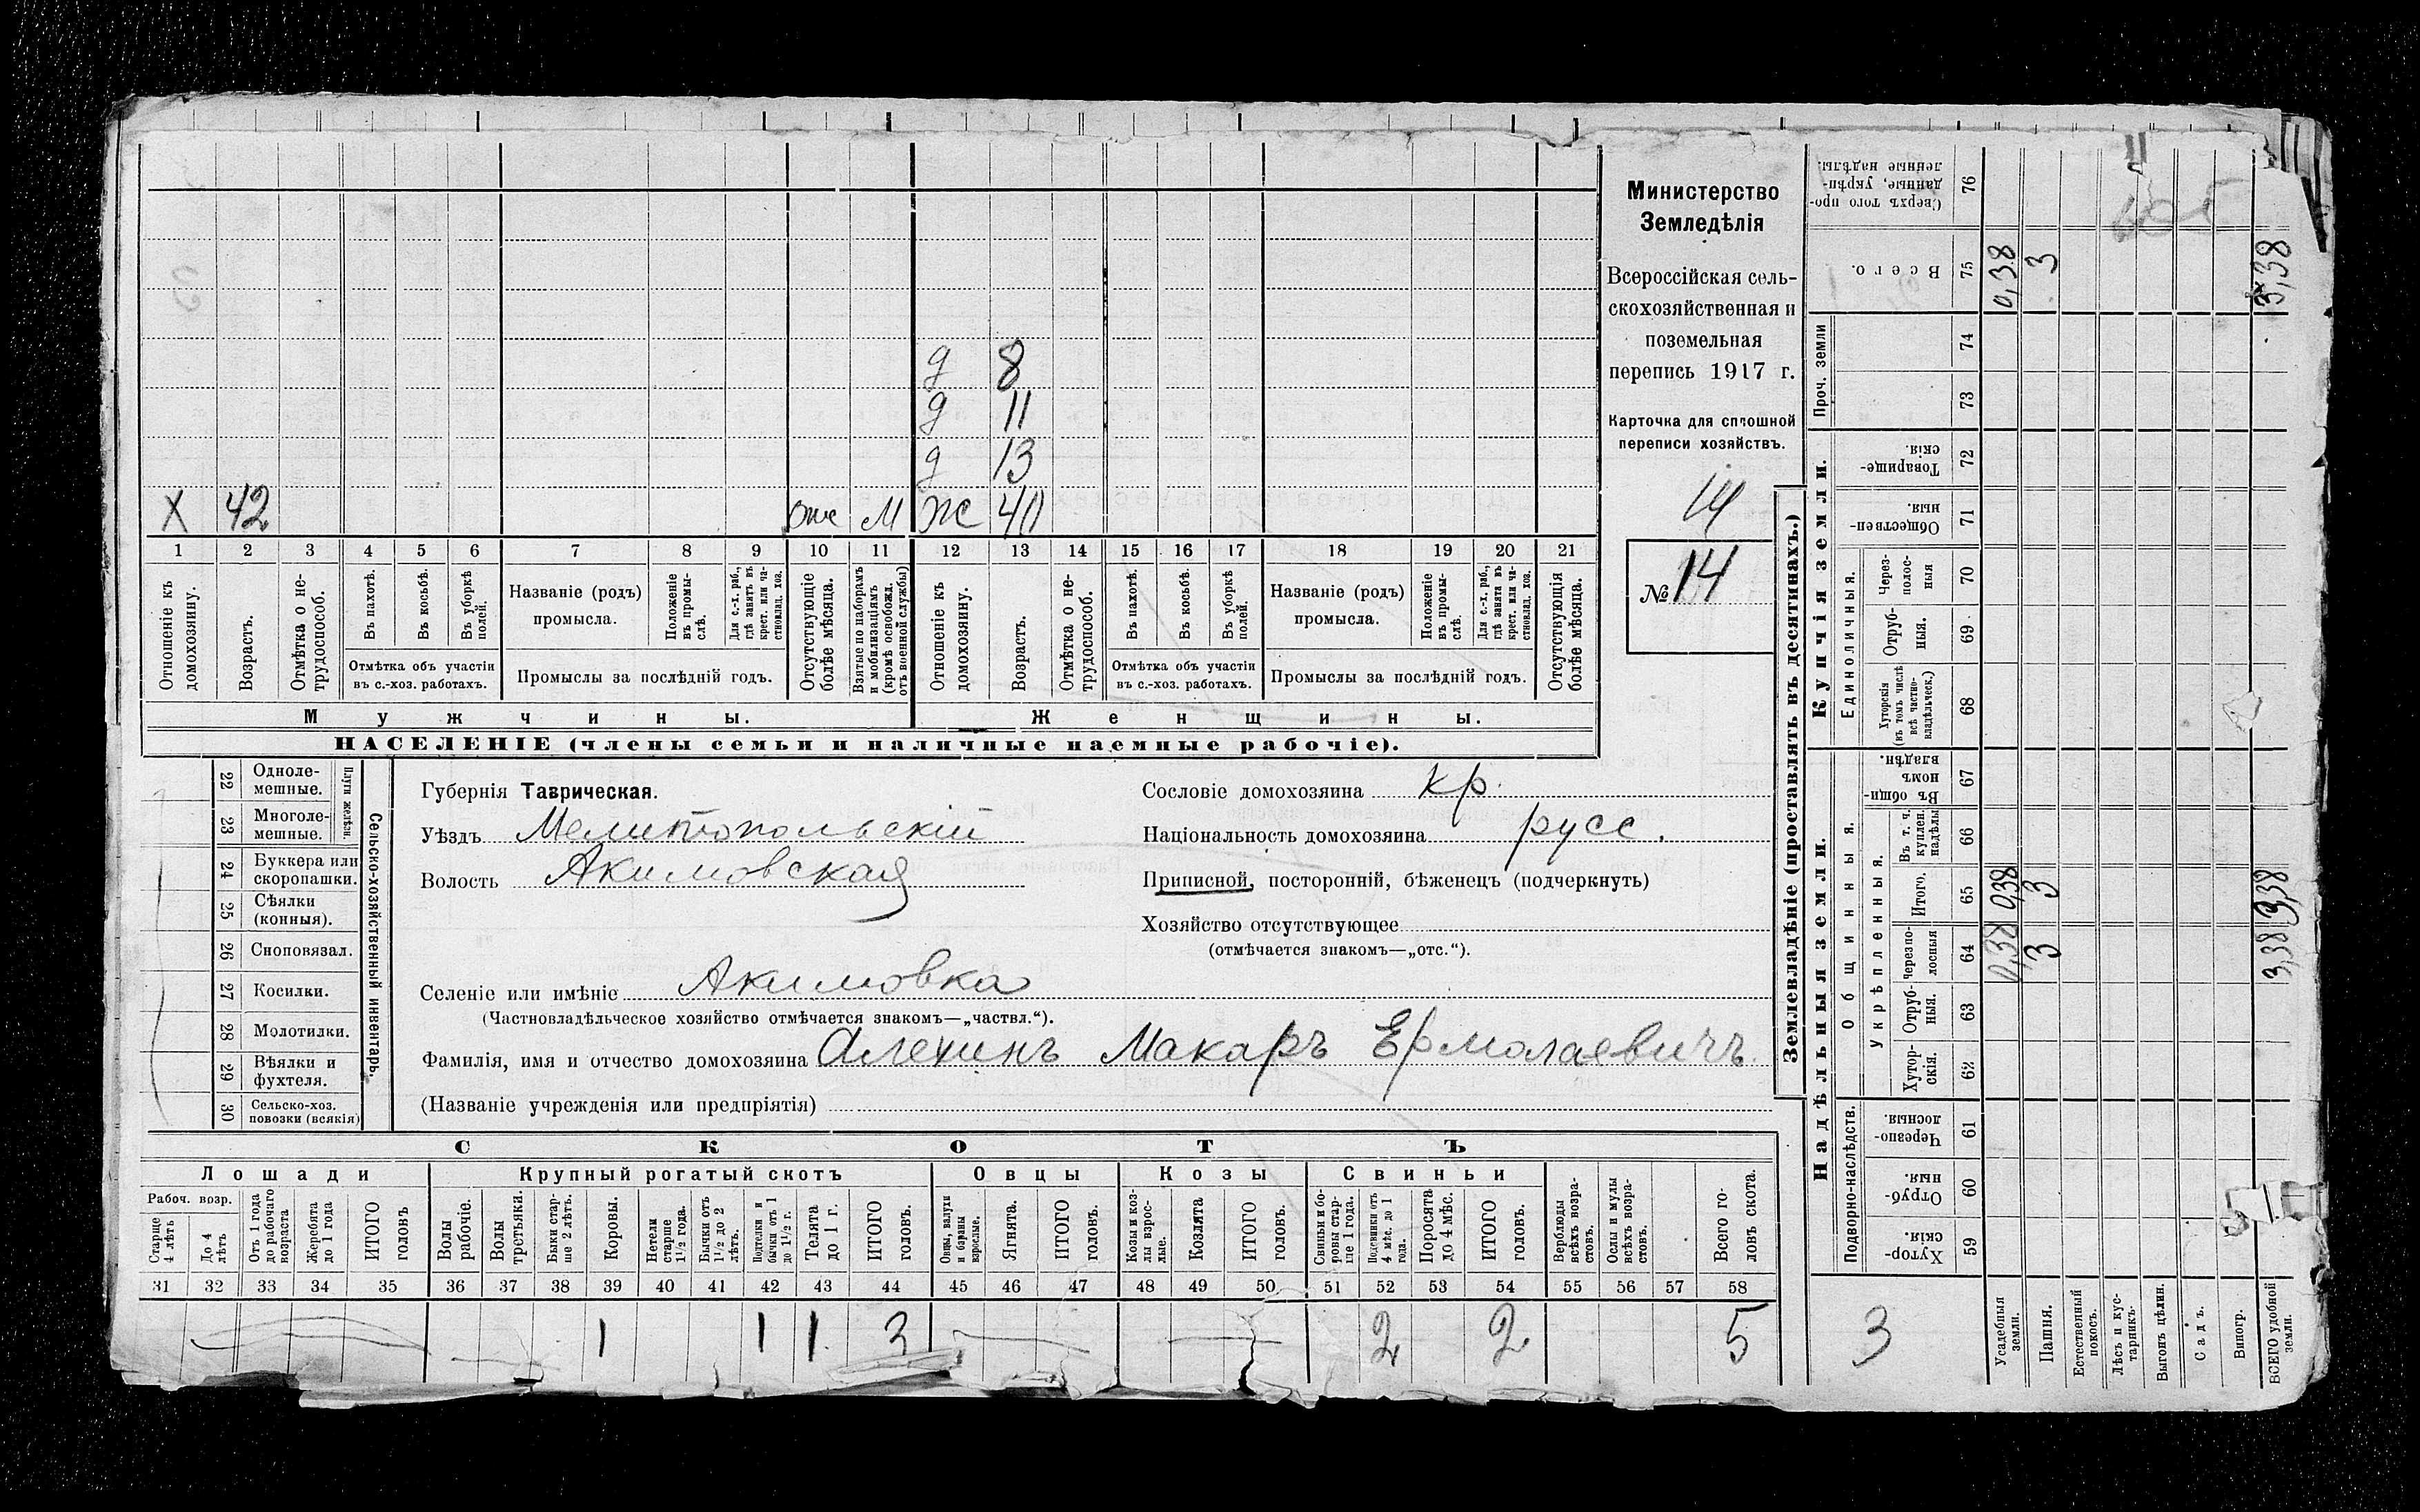 Министерство
Земледѣлія
Всероссійская сель-
скохозяйственная и
поземельная
перепись 1917 г.
Карточка для сплошной
переписи хозяйствъ.
14
№ 14
д 8
д 11
д 13
Х 42 отс М Ж 40
1 2 3 4 5 6 7 8 9 10 11 12 13 14 15 16 17 18 19 20 21
Отношеніе къ домохозяину.
Возрастъ.
Отмѣтка о не-трудоспособ.
Въ пахотѣ.
Въ косьбѣ.
Въ уборкѣ полей.
Отмѣтка объ участіи
въ с.-хоз. работахъ.
Названіе (родъ)
промысла.
Положеніе въ промы-слѣ.
Для с.-х. раб., гдѣ занятъ въ крест. или ча-стновлад. хоз.
Промыслы за послѣдній годъ.
Отсутствующіе болѣе мѣсяца.
Взятые по наборамъ и мобилизаціямъ (кромѣ освобожд. отъ военной службы)
Отношеніе къ домохозяину.
Возрастъ.
Отмѣтка о не-трудоспособ.
Въ пахотѣ.
Въ косьбѣ.
Въ уборкѣ полей.
Отмѣтка объ участіи
въ с.-хоз. работахъ.
Названіе (родъ)
промысла.
Положеніе въ промы-слѣ.
Для с.-х. раб., гдѣ занята въ крест. или ча-стновлад. хоз.
Промыслы за послѣдній годъ.
Отсутствующія болѣе мѣсяца.
Мужчины. Женщины.
НАСЕЛЕНІЕ (члены семьи и наличные наемные рабочіе).
22 Одноле-мешные.
23 Многоле-мешные.
Плуги желѣзн.
24 Буккера или скоропашки.
25 Сѣялки (конныя).
26 Сноповязал.
27 Косилки.
28 Молотилки.
29 Вѣялки и фухтеля.
30 Сельско-хоз. повозки (всякія)
Сельско-хозяйственный инвентарь.
Губернія Таврическая.
Уѣздъ Мелитопольскій
Волость Акимовская
Сословіе домохозяина кр.
Національность домохозяина русс.
Приписной, посторонній, бѣженецъ (подчеркнуть)
Хозяйство отсутствующее
(отмѣчается знакомъ—„отс.“).
Селеніе или имѣніе Акимовка
(Частновладѣльческое хозяйство отмѣчается знакомъ—„частвл.“).
Фамилія, имя и отчество домохозяина Алехинъ Макаръ Ермолаевичъ
(Названіе учрежденія или предпріятія)
СКОТЪ
Лошади Крупный рогатый скотъ Овцы Козы Свиньи
Рабоч. возр.
Старше 4 лѣтъ
До 4 лѣтъ
Отъ 1 года до рабочаго возраста
Жеребята до 1 года
ИТОГО головъ
Волы рабочіе.
Волы третьяки.
Быки стар-ше 2 лѣтъ.
Коровы.
Нетели старше 1½ года.
Бычки отъ 1½ до 2 лѣтъ.
Подтелки и бычки отъ 1 до 1½ г.
Телята до 1 г.
ИТОГО головъ.
Овцы, валухи и бараны взрослые.
Ягнята.
ИТОГО головъ.
Козы и коз-лы взрос-лые.
Козлята
ИТОГО головъ.
Свиньи и бо-ровы стар-ше 1 года.
Подсвинки отъ 4 мѣс. до 1 года.
Поросята до 4 мѣс.
ИТОГО головъ.
Верблюды всѣхъ возра-стовъ.
Ослы и мулы всѣхъ возра-стовъ.
Всего го-ловъ скота.
31 32 33 34 35 36 37 38 39 40 41 42 43 44 45 46 47 48 49 50 51 52 53 54 55 56 57 58
1 1 1 3 2 2 5
Землевладѣніе (проставлять въ десятинахъ.)
Надѣльныя земли. Купчія земли.
Проч. земли
Подворно-наслѣдств.
Общинныя.
Укрѣпленныя.
Единоличныя.
59 Хутор-скія.
60 Отруб-ныя.
61 Черезпо-лосныя
62 Хутор-скія.
63 Отруб-ныя.
64 Черезпо-лосныя
65 Итого.
66 Въ т. ч. куплен. надѣлы
67 Въ общин-номъ владѣн.
68 Хуторскія (въ томъ числѣ всѣ частно-владѣльческ.)
69 Отруб-ныя.
70 Через-полос-ныя
71 Обществен-ныя.
72 Товарище-скія
73
74
75 Всего.
76 Сверхъ того про-данные, укрѣп-ленные надѣлы.
Усадебныя земли. 0,38 0,38 0,38
Пашня. 3 3 3
Естественный покосъ.
Лѣсъ и кус-тарникъ.
Выгонъ цѣлин.
Садъ.
Виногр.
ВСЕГО удобной земли. 3,38 3,38 3,38
3